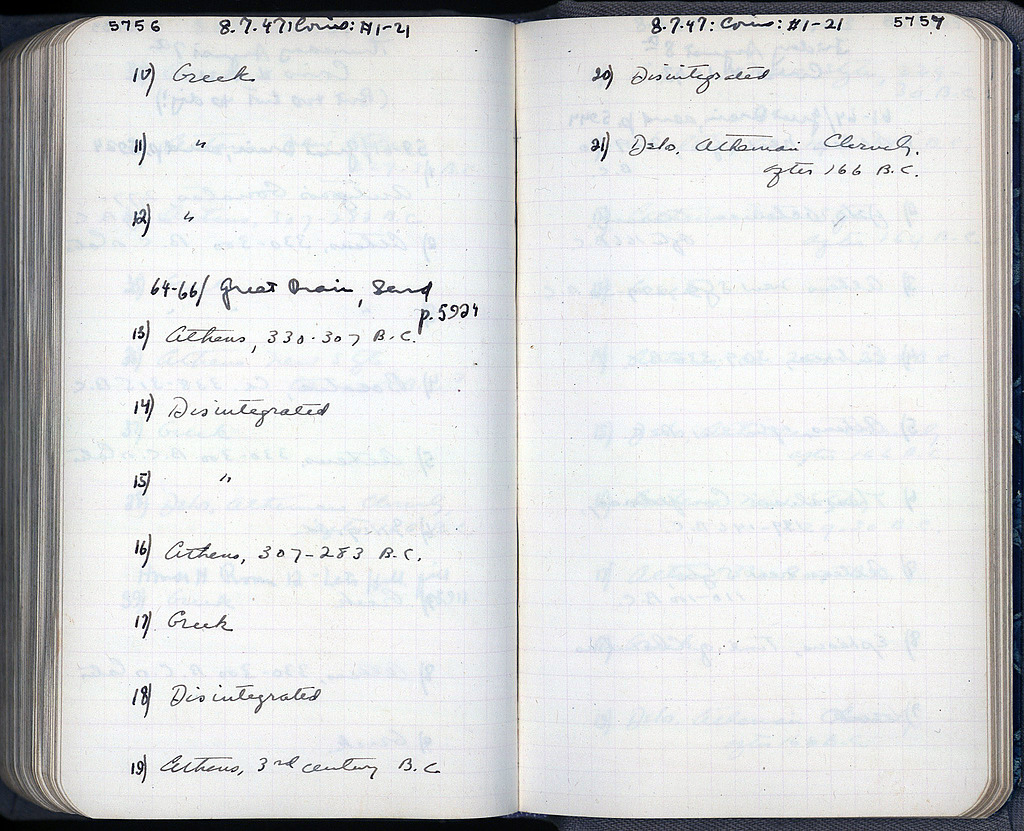 5756 8.7.47: Coins: #1-21
10) Greek
11) "
12) "
64-66/ Great Drain, Sand
p. 5924
13) Athens, 330-307 B.C.
14) Disintegrated
15) "
16) Athens, 307-283 B.C.
17) Greek
18) Disintegrated
19) Athens, 3rd century B.C.
8.7.47: Coins: #1-21 5757
20) Disintegrated
21) Delo, Athenian Cleruchy.
after 166 B.C.